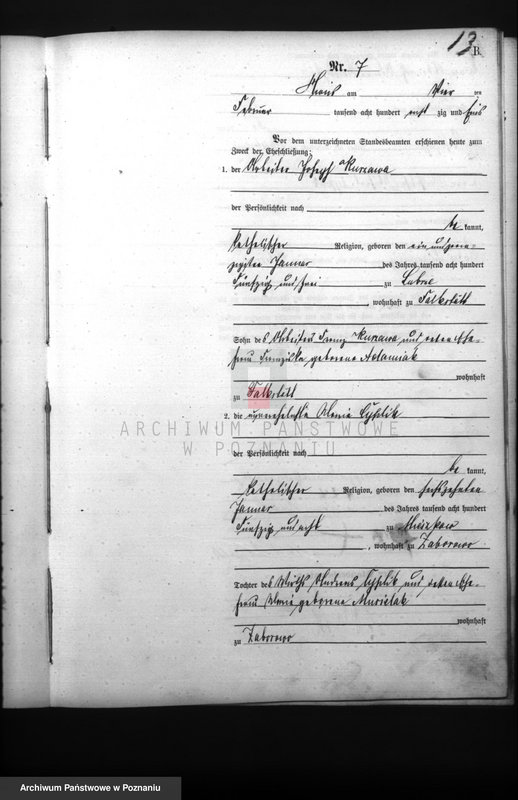 13
B.
Nr. 7
am Vier ten
Februar tausend acht hundert zig und
Vor dem unterzeichneten Standesbeamten erschienen heute zum
Zweck der Eheschließung:
1. der Arbeiter Joseph Kurzawa
der Persönlichkeit nach
be kannt,
katholischer Religion, geboren den ein und zwan-
zigsten Januar des Jahres tausend acht hundert
Fünfzig und drei zu
, wohnhaft zu Falkstätt
Sohn des Arbeiters Franz Kurzawa und Ehe-
frau Franziska geborene Adamiak
wohnhaft
zu Falkstätt
2. die unverehelichte Maria Cyplik
der Persönlichkeit nach
be kannt,
katholischer Religion, geboren den sechszehnten
Januar des Jahres tausend acht hundert
Fünfzig und acht zu
, wohnhaft zu Zaborowo
Tochter des Wirths Andreas Cyplik und Ehe-
frau Marie geborene Musielak
wohnhaft
zu Zaborowo
ARCHIWUM PAŃSTWOWE
W POZNANIU
Archiwum Państwowe w Poznaniu